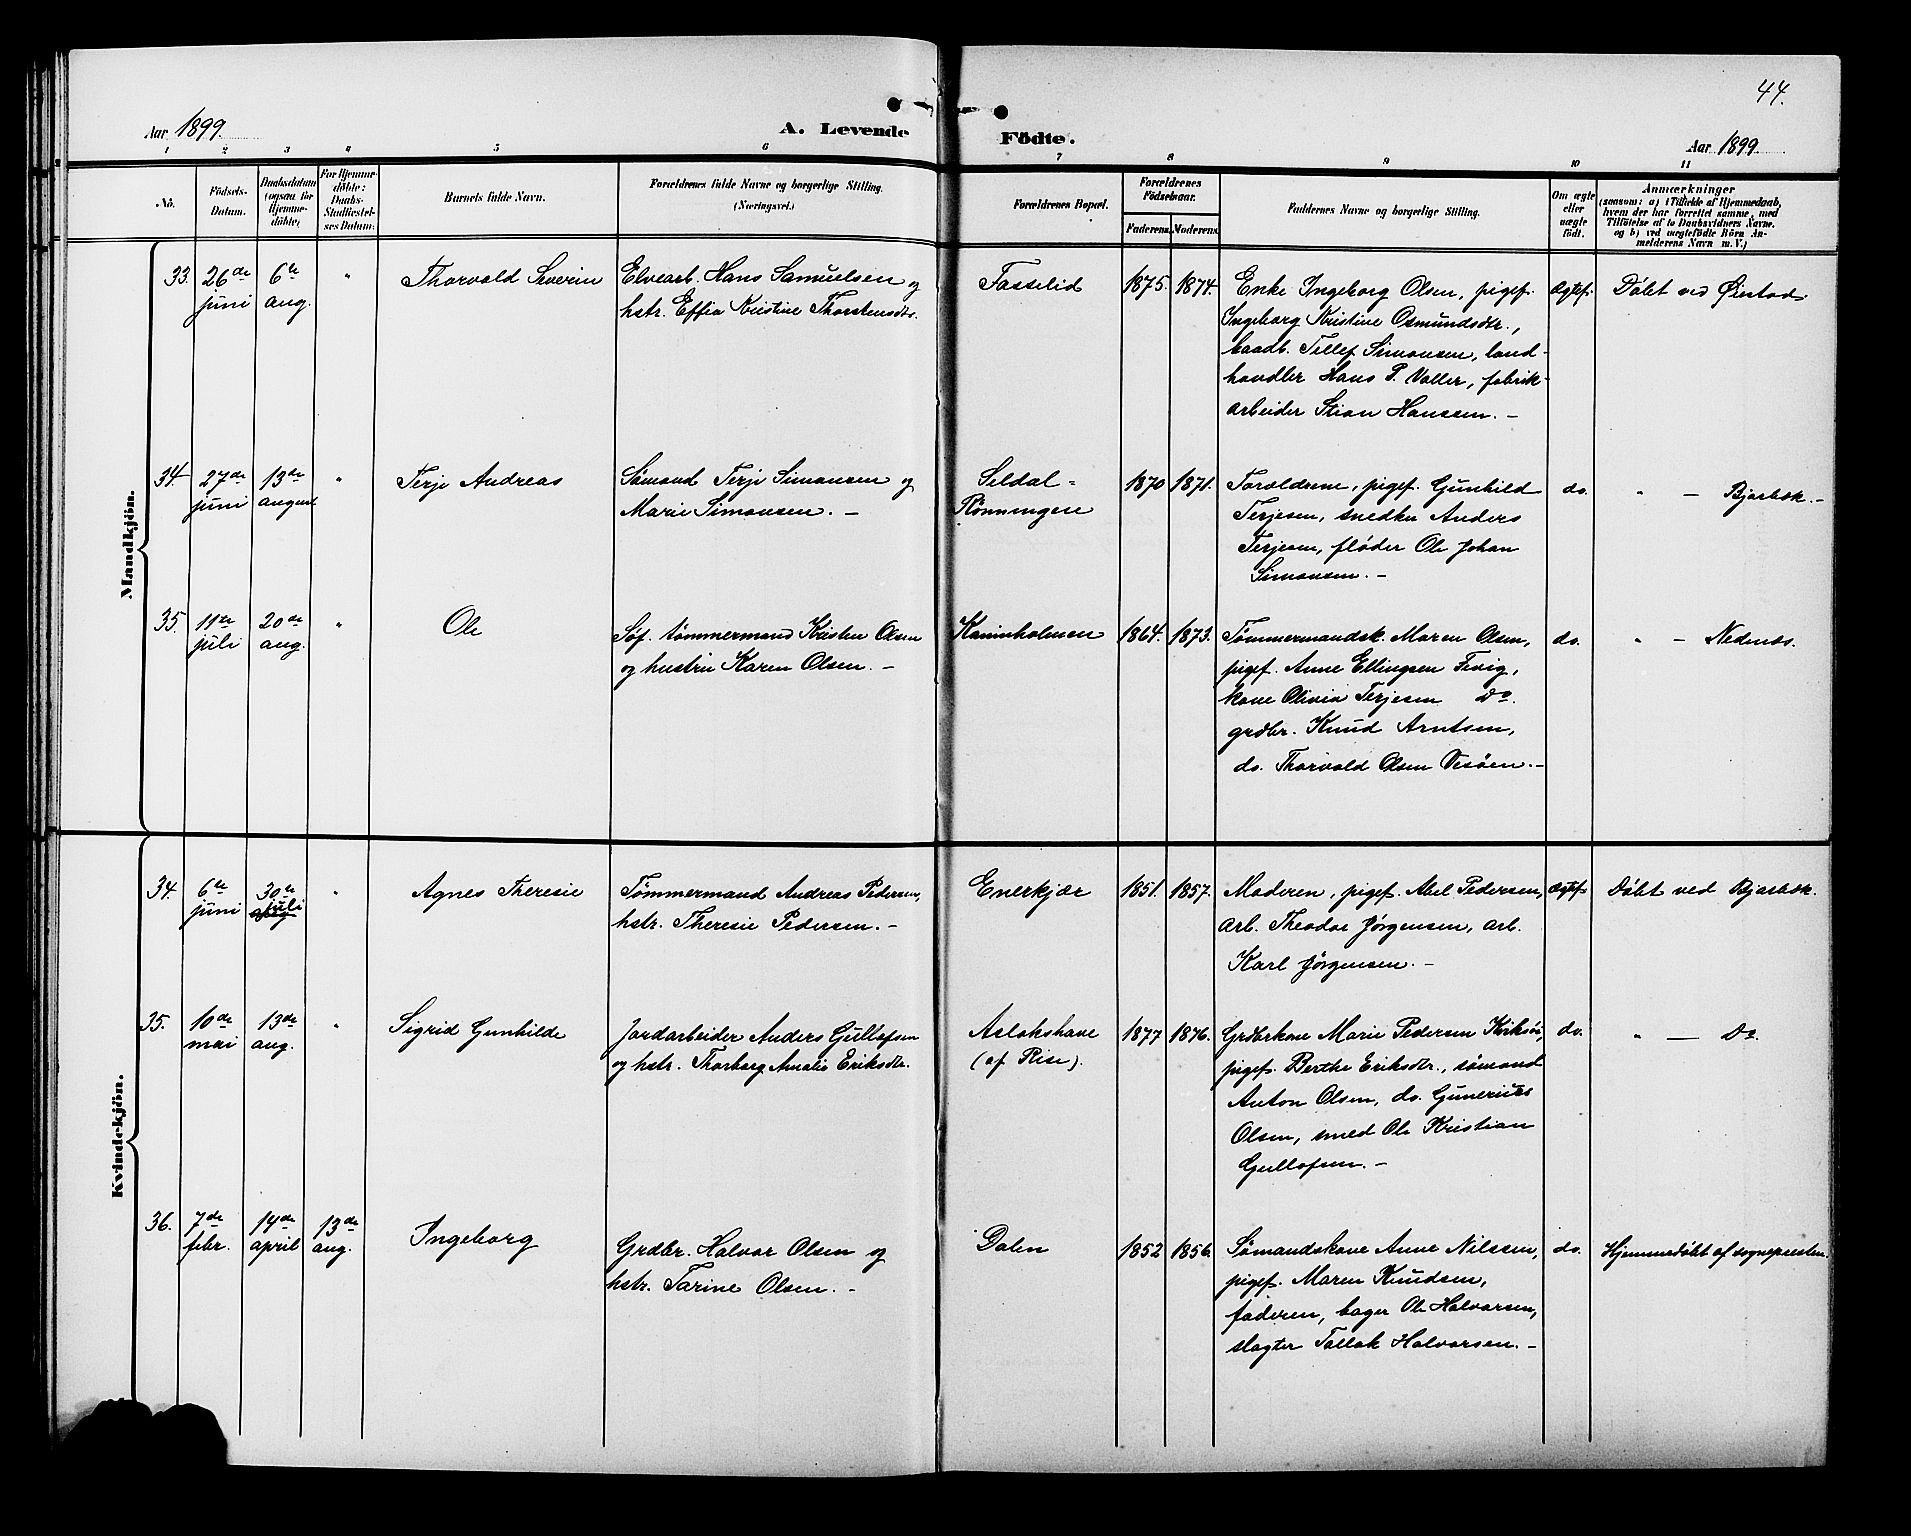 44.
Aar 1899.
A. Levende
Födte.
Aar 1899.
1 2 3 4 5 6 7 8 9 10 11
No.
Födsels-
Datum.
Daabsdatum
(ogsaa for
Hjemme-
döbte)
For Hjemme-
döbte:
Daabs-
Stadfæstel-
ses Datum.
Barnets fulde Navn.
Forældrenes fulde Navne og borgerlige Stilling.
(Næringsvei.)
Forældrenes Bopæl.
Forældrenes
Födselsaar.
Faderens. Moderens.
Faddernes Navne og borgerlige Stilling.
Om ægte
eller
uægte
födt.
Anmærkninger
(saasom: a) i Tilfælde af Hjemmedaab,
hvem der har forrettet samme, med
Tilföielse af to Daabsvidners Navne.
og b) ved uægtefödte Börn An-
melderens Navn m. V.)
Mandkjön.
33. 26de
juni
6te
aug.
"
Thorvald Severin
Elvearb. Hans Samuelsen og
hstr. Effia Kristine Thorstensdtr.
Tasselid
1875. 1874.
Enke Ingeborg Olsen, pigef.
Ingeborg Kristine Osmundsdtr.,
baadb. Tellef Simonsen, land-
handler Hans P. Valler, fabrik-
arbeider Stian Hansen. –
ægtef.
Döbt ved Öiestad.
34. 27de
juni
13de
august
"
Terje Andreas
Sömand Terje Simonsen og
Marie Simonsen. –
Seldal-
Rönningen
1870 1871.
Forældrene, pigef. Gunhild
Terjesen, snedker Anders
Terjesen, flöder Ole Johan
Simonsen. –
do.
" – Bjorbæk. –
35. 11te
juli
20de
aug.
"
Ole
Söf. tömmermand Kristen Olsen
og hustru Karen Olsen. –
Kaninholmen
1864. 1873.
Tömmermandsk. Maren Olsen,
pigef. Anne Ellingsen Fevig,
kone Olivia Terjesen Do.
grdbr. Knud Arntsen,
do. Thorvald Olsen Vesöen. –
do.
" – Nedenæs.
Kvindekjön.
34. 6te
juni
30te
juli
"
Agnes Theresie
Tömmermand Andreas Pedersen,
hstr. Theresie Pedersen. –
Enerkjær
1851. 1857.
Moderen, pigef. Abel Pedersen,
arb. Theodor Jörgensen, arb.
Karl Jörgensen. –
ægtef.
Döbt ved Bjorbæk.
35. 10de
mai
13de
aug.
"
Sigrid Gunhilde
Jordarbeider Anders Gullofsen
og hstr. Thorborg Amalie Eriksdtr.
Aslakshave
(af Rise).
1877 1876.
Grdbrkone Marie Pedersen
pigef. Berthe Eriksdtr., sömand
Anton Olsen, do. Gunerius
Olsen, smed Ole Kristian
Gullofsen. –
do.
" – Do.
36. 7de
febr.
14de
april
13de
aug.
Ingeborg
Grdbr. Halvor Olsen og
hstr. Tarine Olsen. –
Dalen
1852 1856.
Sömandskone Anne Nilssen,
pigef. Maren Knudsen,
faderen, bager Ole Halvorsen,
slagter Tallak Halvorsen. –
do.
Hjemmedöbt af sognepresten.